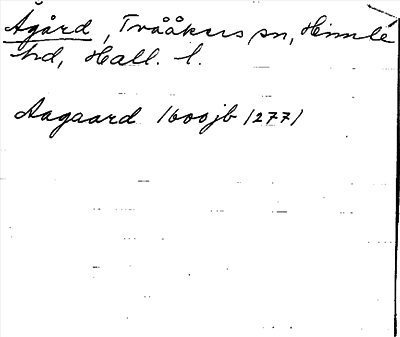 Ågård, Tvååkers sn, Himle
hd, Hall. l.
Aagaard 1600jb 1277/